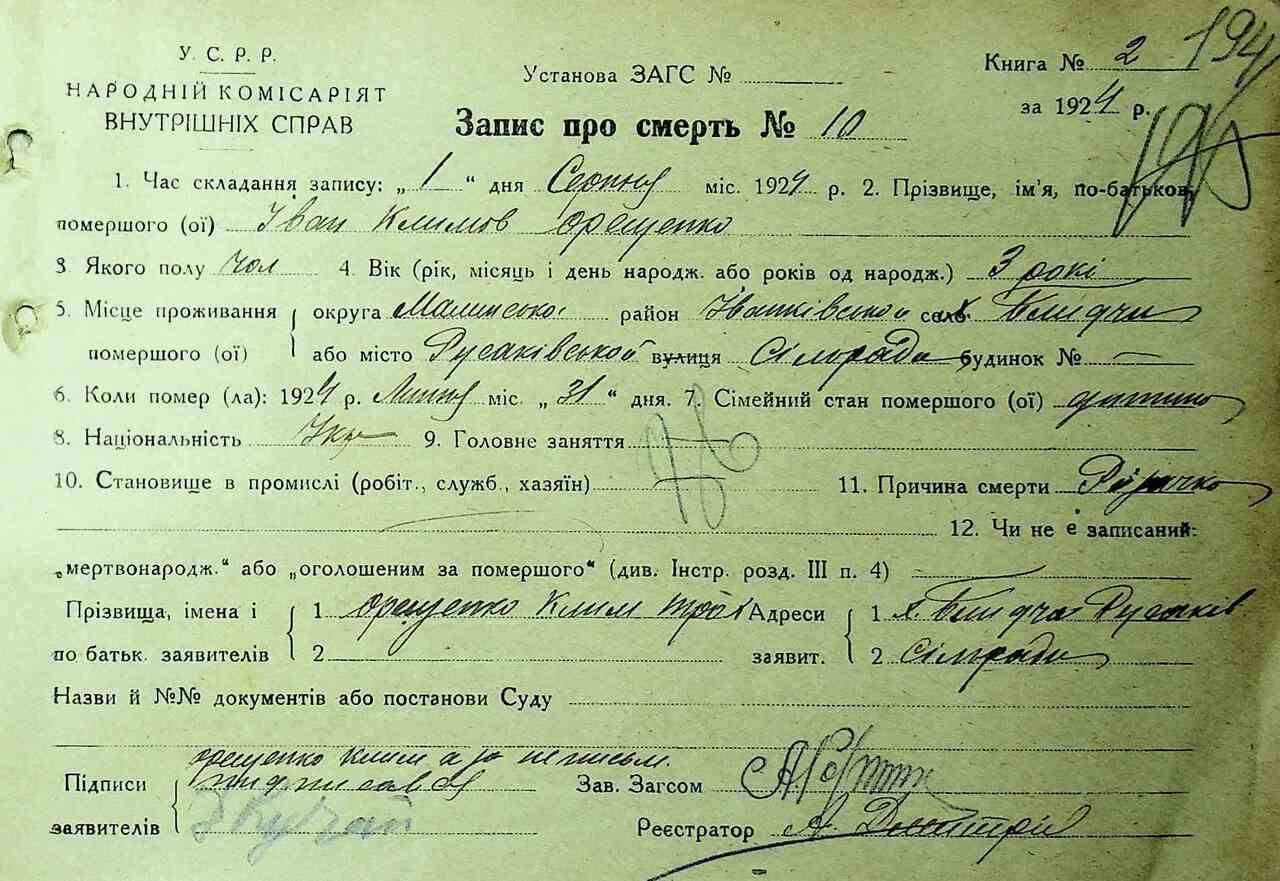 У. С. Р. Р.
НАРОДНІЙ КОМІСАРІЯТ
ВНУТРІШНІХ СПРАВ
Установа ЗАГС №
Книга № 2
194
за 1924 р.
195
Запис про смерть № 10
1. Час складання запису: „1“ дня Серпня міс. 1924 р. 2. Прізвище, ім'я, по-батьков.
помершого (ої) Іван Климов Орещенко
3. Якого полу чол 4. Вік (рік, місяць і день народж. або років од народж.) 3 рокі
5. Місце проживання округа Малинської район Іванківської село х.
помершого (ої) або місто Русаківськой вулиця Сілради будинок № —
6. Коли помер (ла): 1924 р. Липня міс. „31“ дня. 7. Сімейний стан помершого (ої) дитина
8. Національність Укр 9. Головне заняття
76
10. Становище в промислі (робіт., служб., хазяїн) 11. Причина смерти
12. Чи не є записаний:
„мертвонародж.“ або „оголошеним за помершого“ (див. Інстр. розд. III п. 4)
Прізвища, імена і 1 Орещенко Клим Адреси 1 х. Русаків
по батьк. заявителів 2 заявит. 2 Сілради
Назви й №№ документів або постанови Суду
Орещенко Клим а за неписьм.
Підписи підписався Зав. Загсом
заявителів Реєстратор